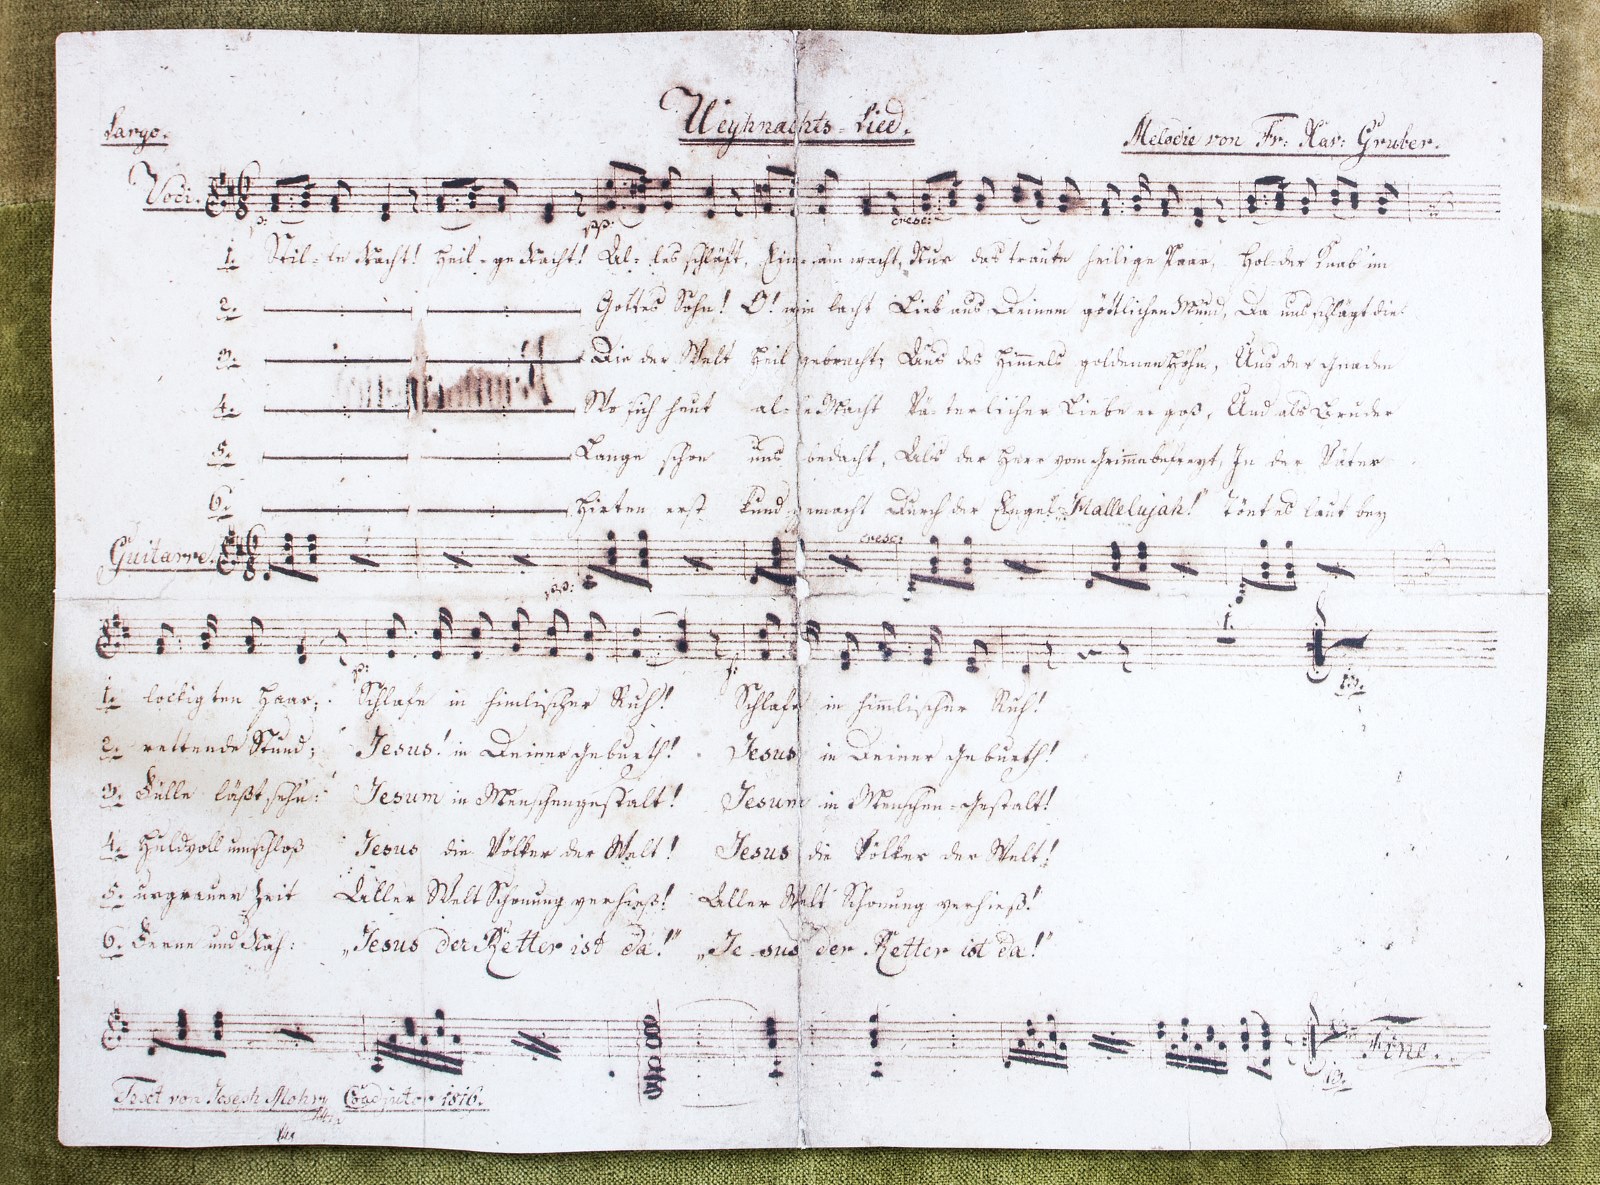 Weyhnachts-Lied.
Largo.
Melodie von Fr: Xav: Gruber.
Voci.
p:
pp:
cresc:
1. Stil-le Nacht! Heil-ge Nacht! Al-les schläft, Ein-sam wacht, Nur das traute heilige Paar, Hol-der Knab im
2. Gottes Sohn! O! wie lacht Lieb aus Deinem göttlichen Mund, Da uns schlägt die
3. Die der Welt Heil gebracht; Aus des Himmels goldenen Höhn, Uns der Gnaden
4. Wo sich heut al-le Macht Vä-terlicher Liebe ergoß, Und als Bruder
5. Lange schon uns bedacht, Als der Herr vom Grimme befreyt, In der Väter
6. Hirten erst kund gemacht Durch der Engel „Hallelujah!" Tönt es laut bey
Guitarre.
cresc:
pp:
p:
f:
1. lockigten Haar; Schlafe in himlischer Ruh! Schlafe in himlischer Ruh!
2. rettende Stund; Jesus! in Deiner Geburth! Jesus in Deiner Geburth!
3. Fülle läßt sehn: Jesum in Menschengestalt! Jesum in Menschen-Gestalt!
4. Huldvoll umschloß Jesus die Völker der Welt! Jesus die Völker der Welt!
5. urgrauer Zeit Aller Welt Schonung verhieß! Aller Welt Schonung verhieß!
6. Ferne und Nah: „Jesus der Retter ist da!" „Je-sus der Retter ist da!"
Fine.
Text von Joseph Mohr Coadjutor 1816.